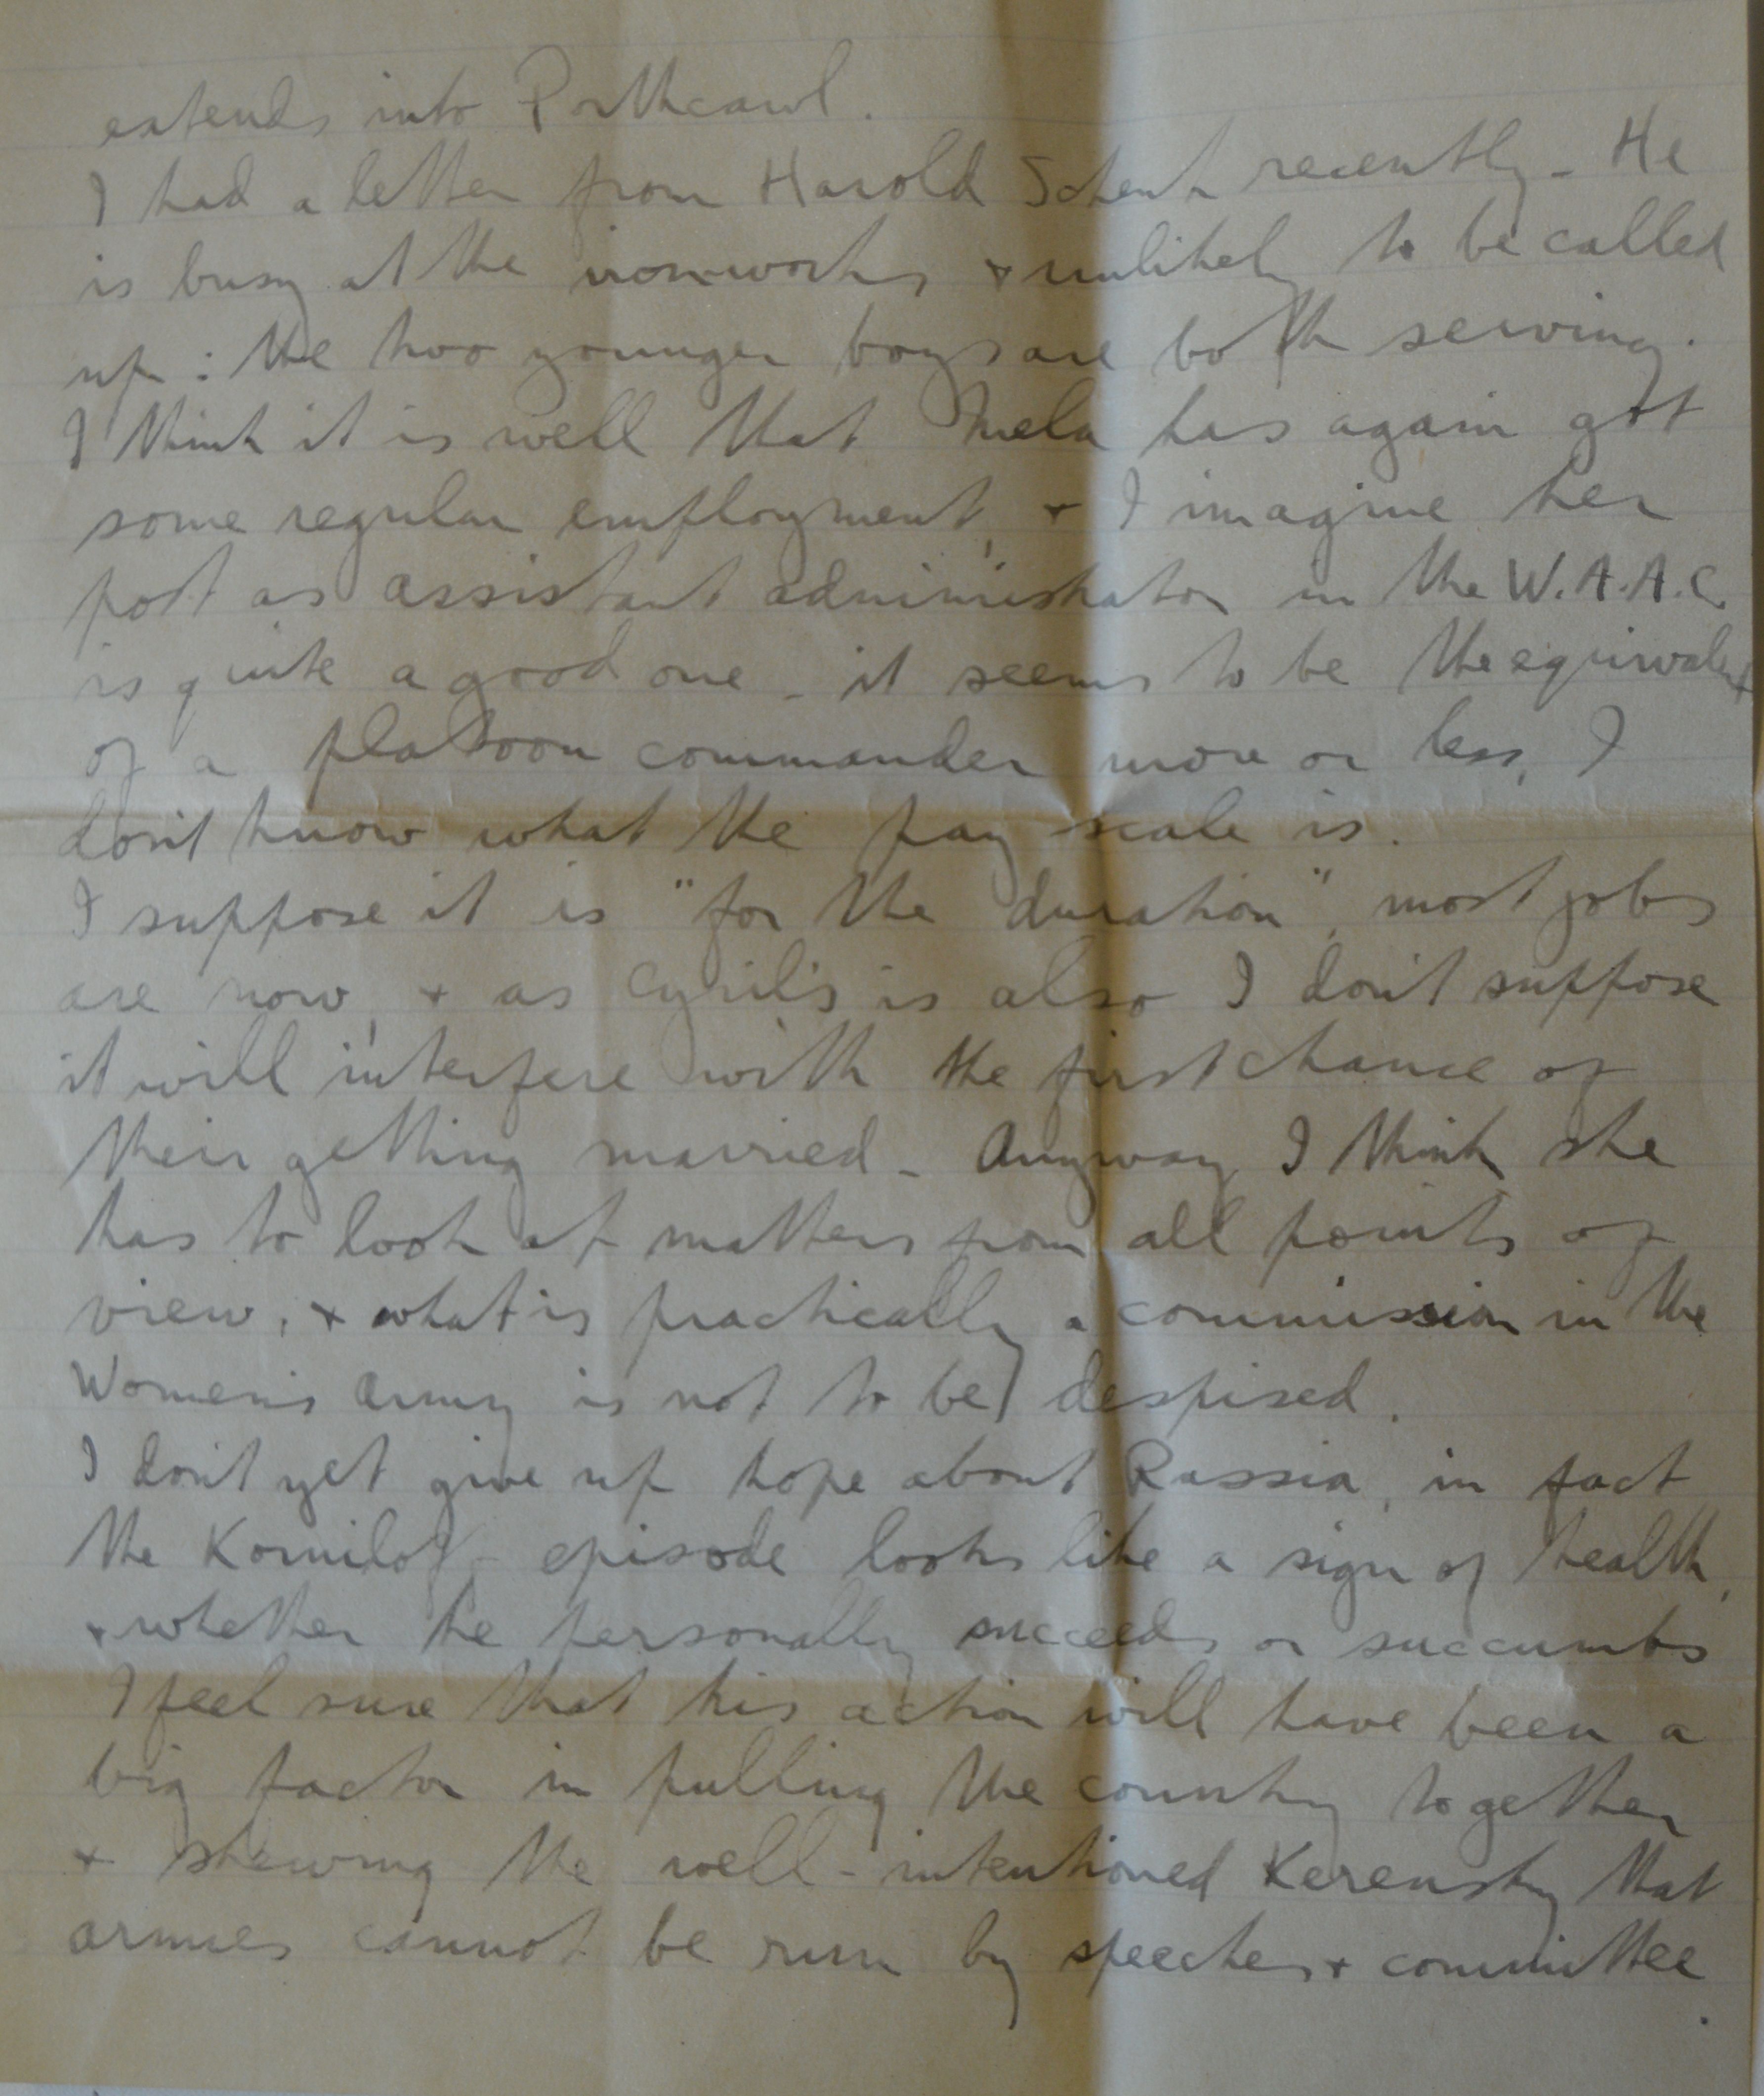 extends into Porthcawl.
I had a letter from Harold Schenk recently - He
is busy at the ironworks & unlikely to be called
up: the two younger boys are both serving.
I think it is well that Mela has again got
some regular employment, & I imagine her
post as assistant administrator in the W.A.A.C.
is quite a good one - it seems to be the equivalent
of a platoon commander more or less, I
don't know what the pay scale is.
I suppose it is "for the duration", most jobs
are now, & as Cyril's is also I don't suppose
it will interfere with the first chance of
their getting married - Anyway I think she
has to look at matters from all points of
view, & what is practically a commission in the
Women's Army is not to be despised.
I don't yet give up hope about Russia, in fact
the Korniloff episode looks like a sign of health,
& whether he personally succeeds or succumbs
I feel sure that his action will have been a
big factor in pulling the country together
& shewing the well-intentioned Kerensky that
armies cannot be run by speeches & committee.